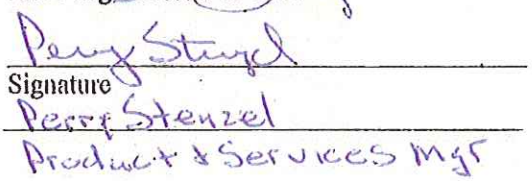 Perry Stenzel
Signature
Perry Stenzel
Product & Services Mgr